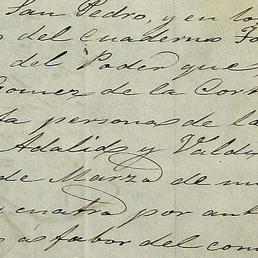 San Pedro, y en los
del Cuaderno Fo
del Poder que
Gomez de la Cort
ta persona de la
Adalid y Valde
de Marzo de mi
cuatro por ant
as fabor del con